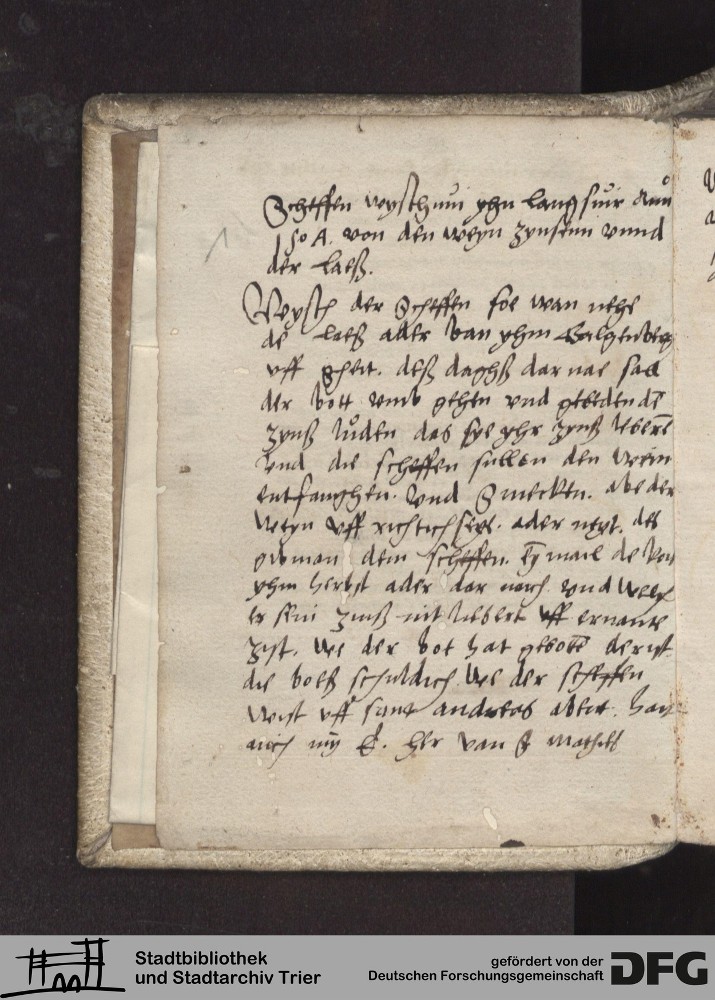 Scheffen weysthum yhn Langsuir Ann
so A. von den weyn zynsenn vnnd
der Laeß.
Weyst der Scheffen soe wan nehe
de Laeß ader van yhm Galgenberg
vff gheit. deß daghß dar nae sall
der bott vmb gehen vnd gebeden dē
zynß luden das sye yhr zynß leberē
vnd die scheffen sullen den wein
entfanghen. vnd Smecken. abe der
weyn vff richtich seye. ader neyt. des
den scheffen. ey mael
yhm herbst ader dar nach vnd welch
er sein zinß nit liebert vff ernante
zyt. we der bot hat geboten der ist
die boeß schuldich we der scheffen
wist vff sant andreas abent. hait
auch myn E. her van S Mathes
Stadtbibliothek
und Stadtarchiv Trier
gefördert von der
Deutschen Forschungsgemeinschaft
DFG